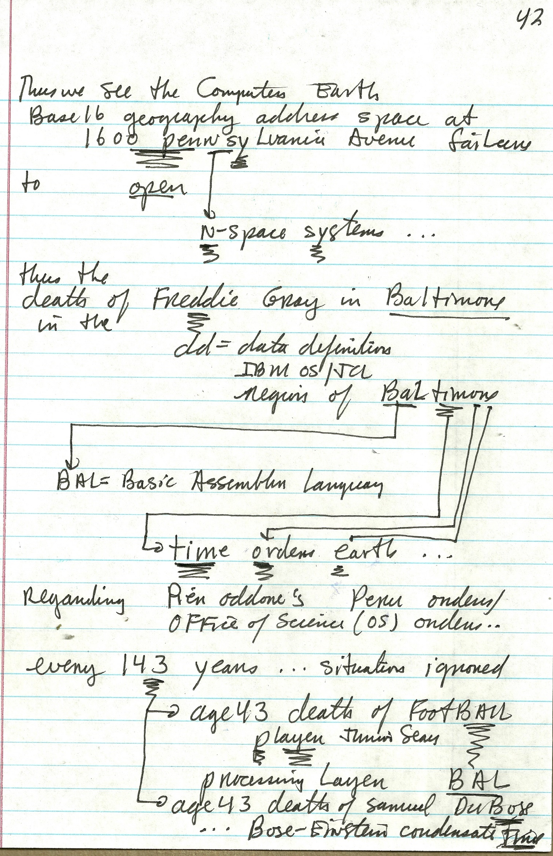 42
Thus we see the Computer Earth
Base 16 geography address space at
1600 pennsylvania Avenue failure
to open
N-space systems ...
thus the
death of Freddie Gray in Baltimore
in the
dd = data definition
IBM OS/JCL
region of Baltimore
BAL = Basic Assembler Language
time orders earth ...
Regarding Pier oddone's Peru orders/
OFFice of Science (OS) orders..
every 143 years ... situation ignored
age 43 death of FootBALL
player Junior Seau
processing Layer BAL
age 43 death of Samuel DuBose
... Bose-Einstein condensate Time